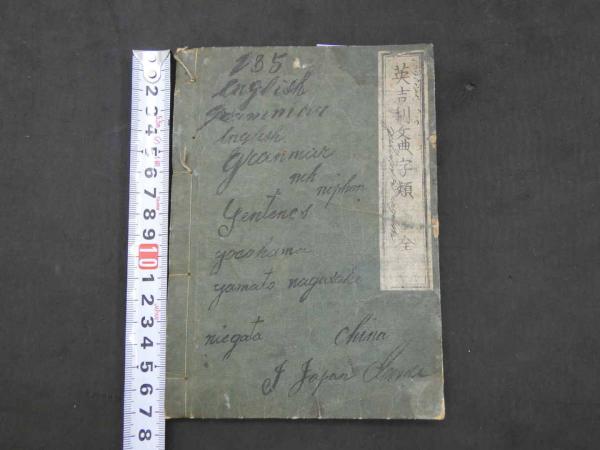 英吉利文典字類 全
235
English
Grammar
English
Grammar
nihon
Sentencs
yocohama
yamato nagasake
niegata china
Japan
2 3 4 5 6 7 8 9 10 1 2 3 4 5 6 7 8